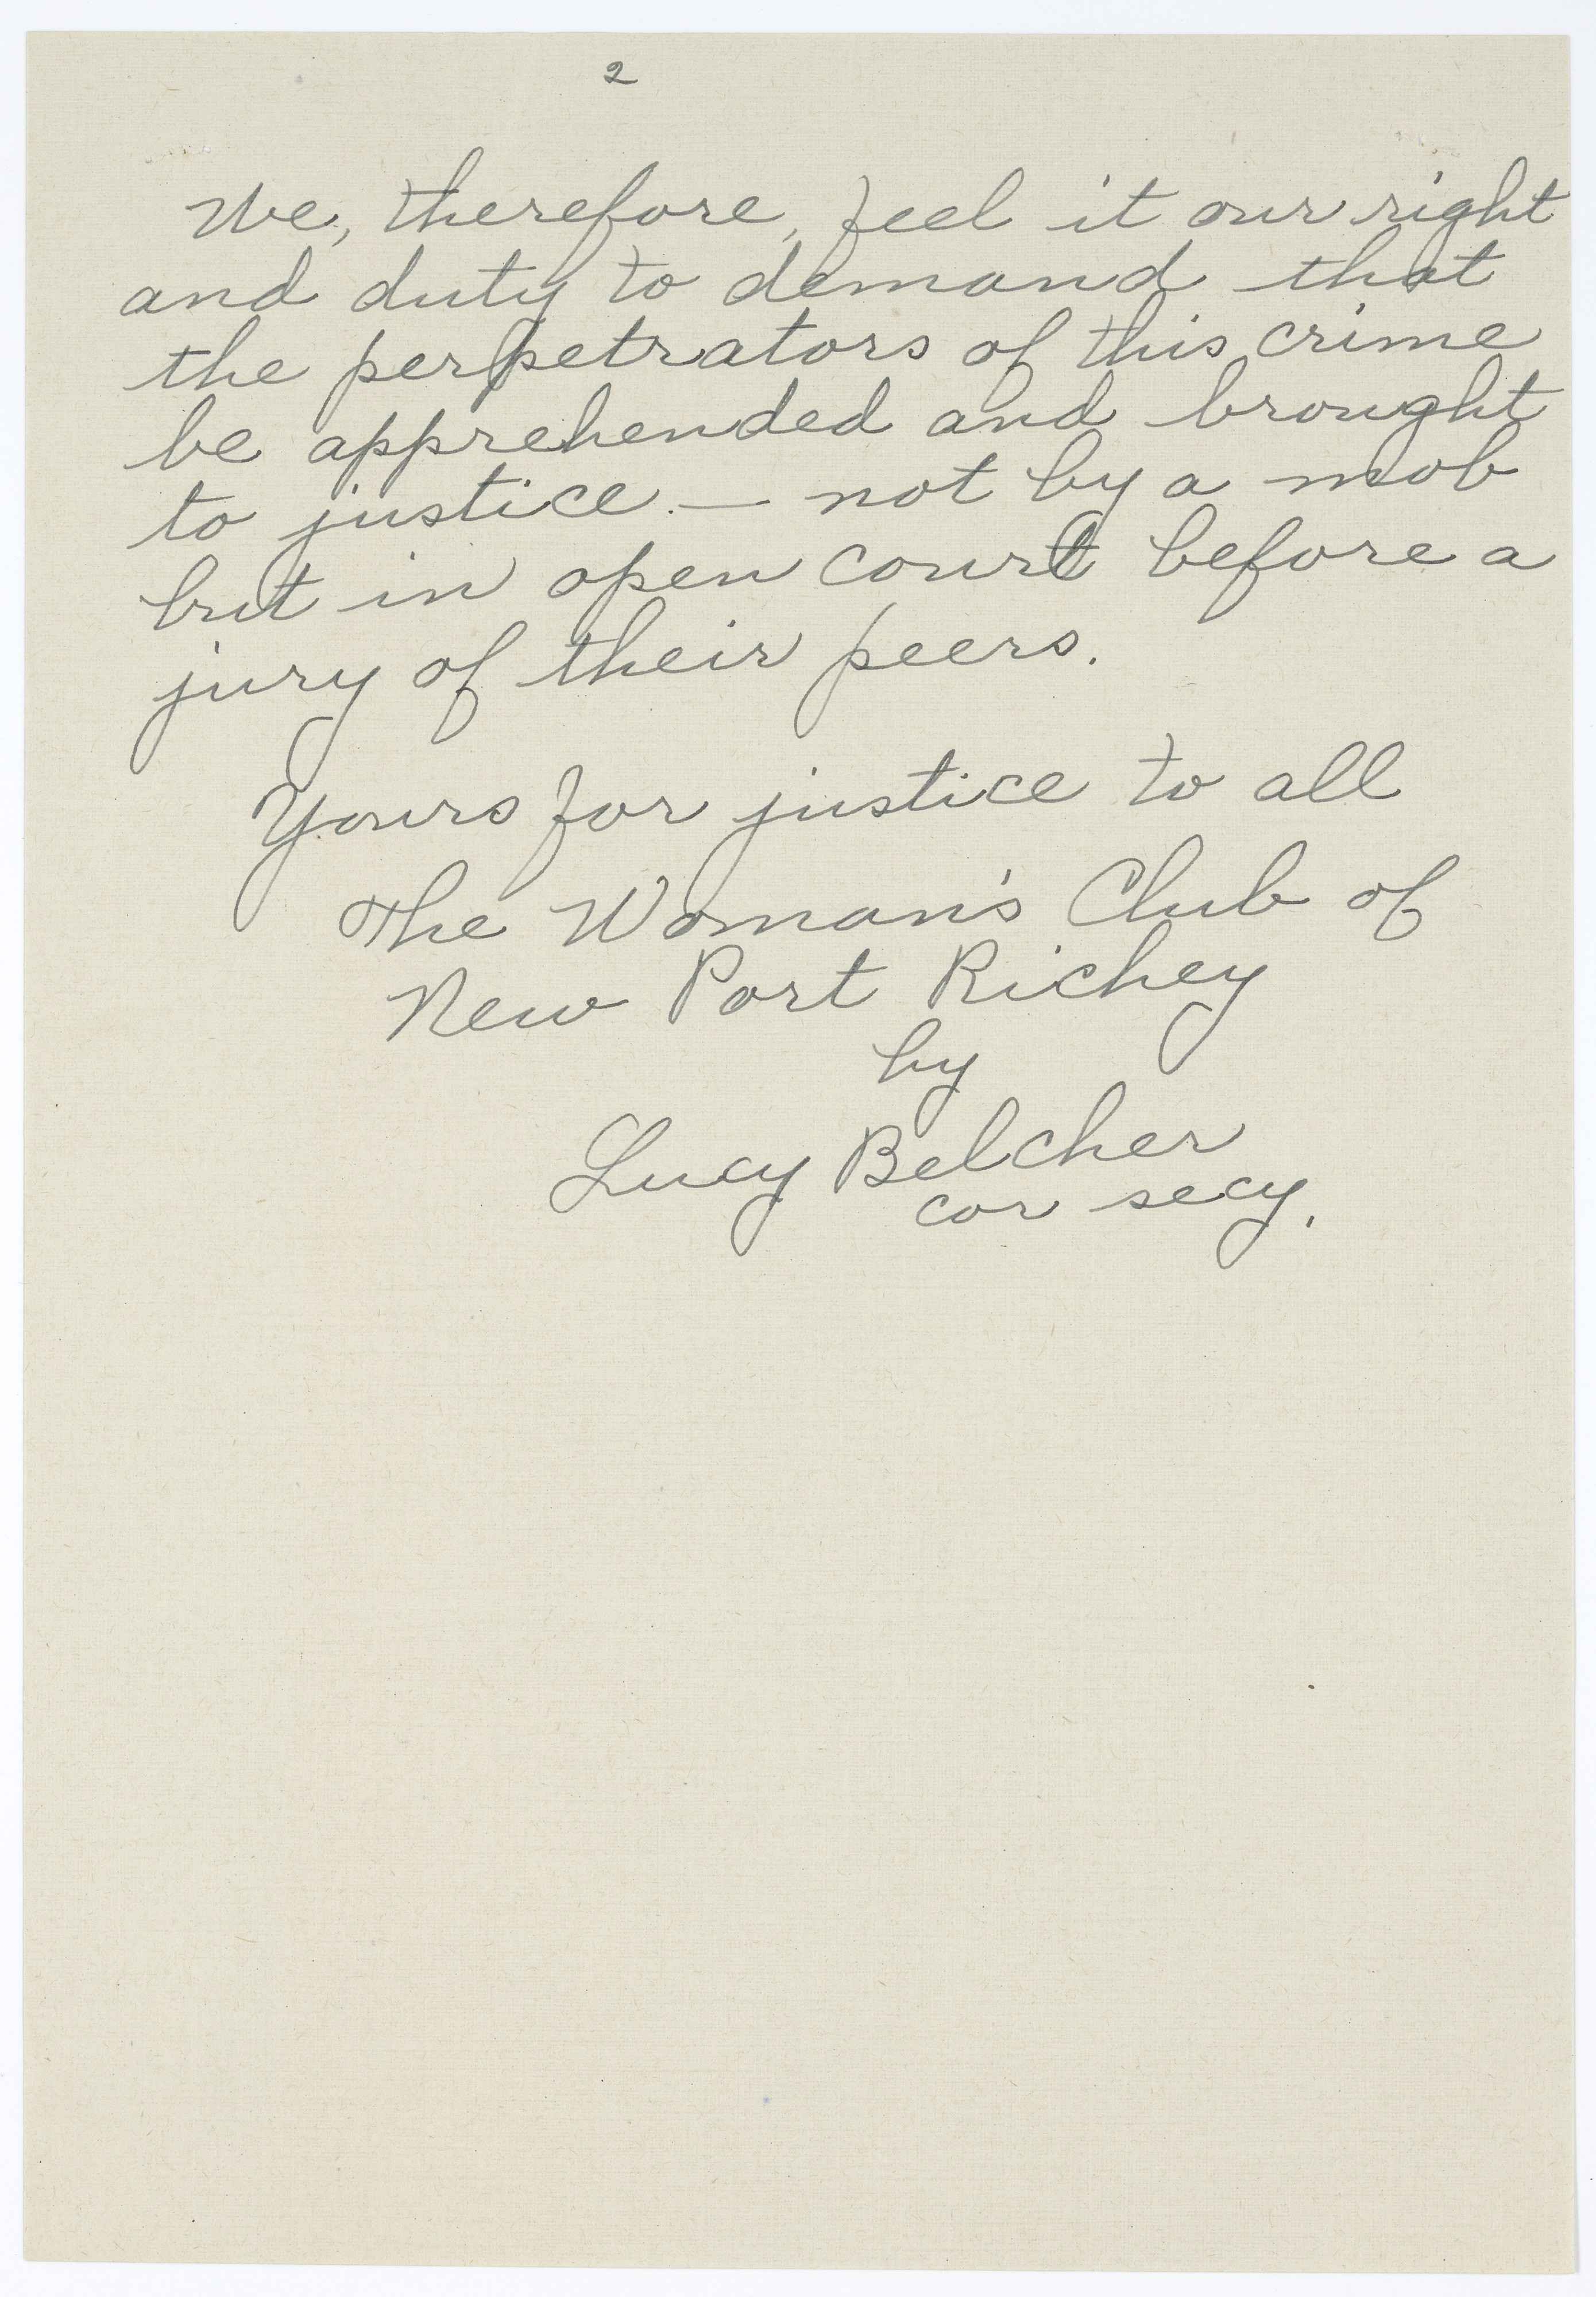 2
We, therefore, feel it our right
and duty to demand that
the perpetrators of this crime
be apprehended and brought
to justice. — not by a mob
but in open court before a
jury of their peers.
Yours for justice to all
The Woman's Club of
New Port Richey
by
Lucy Belcher
cor secy.